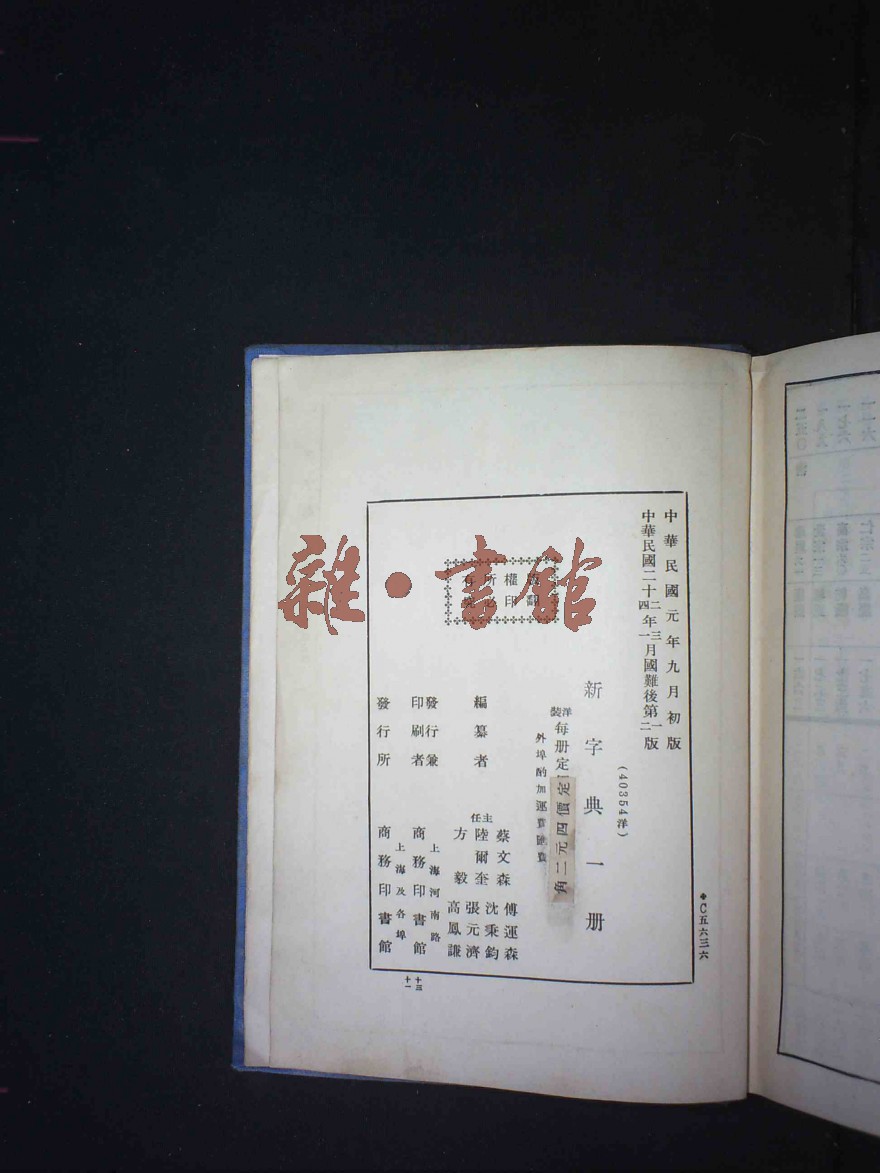 中華民國元年九月初版
中華民國二十二年三月國難後第一版
四 一 二
(40354洋)
新字典一册
洋裝每册定價定價四元二角
外埠酌加運費匯費
翻印必究
權所有
雜·書館
編纂者
主任
蔡文森
陸爾奎
方毅
傅運森
沈秉鈞
張元濟
高鳳謙
發行兼印刷者
上海河南路
商務印書館
發行所
上海及各埠
商務印書館
C五六三六
十三
十一